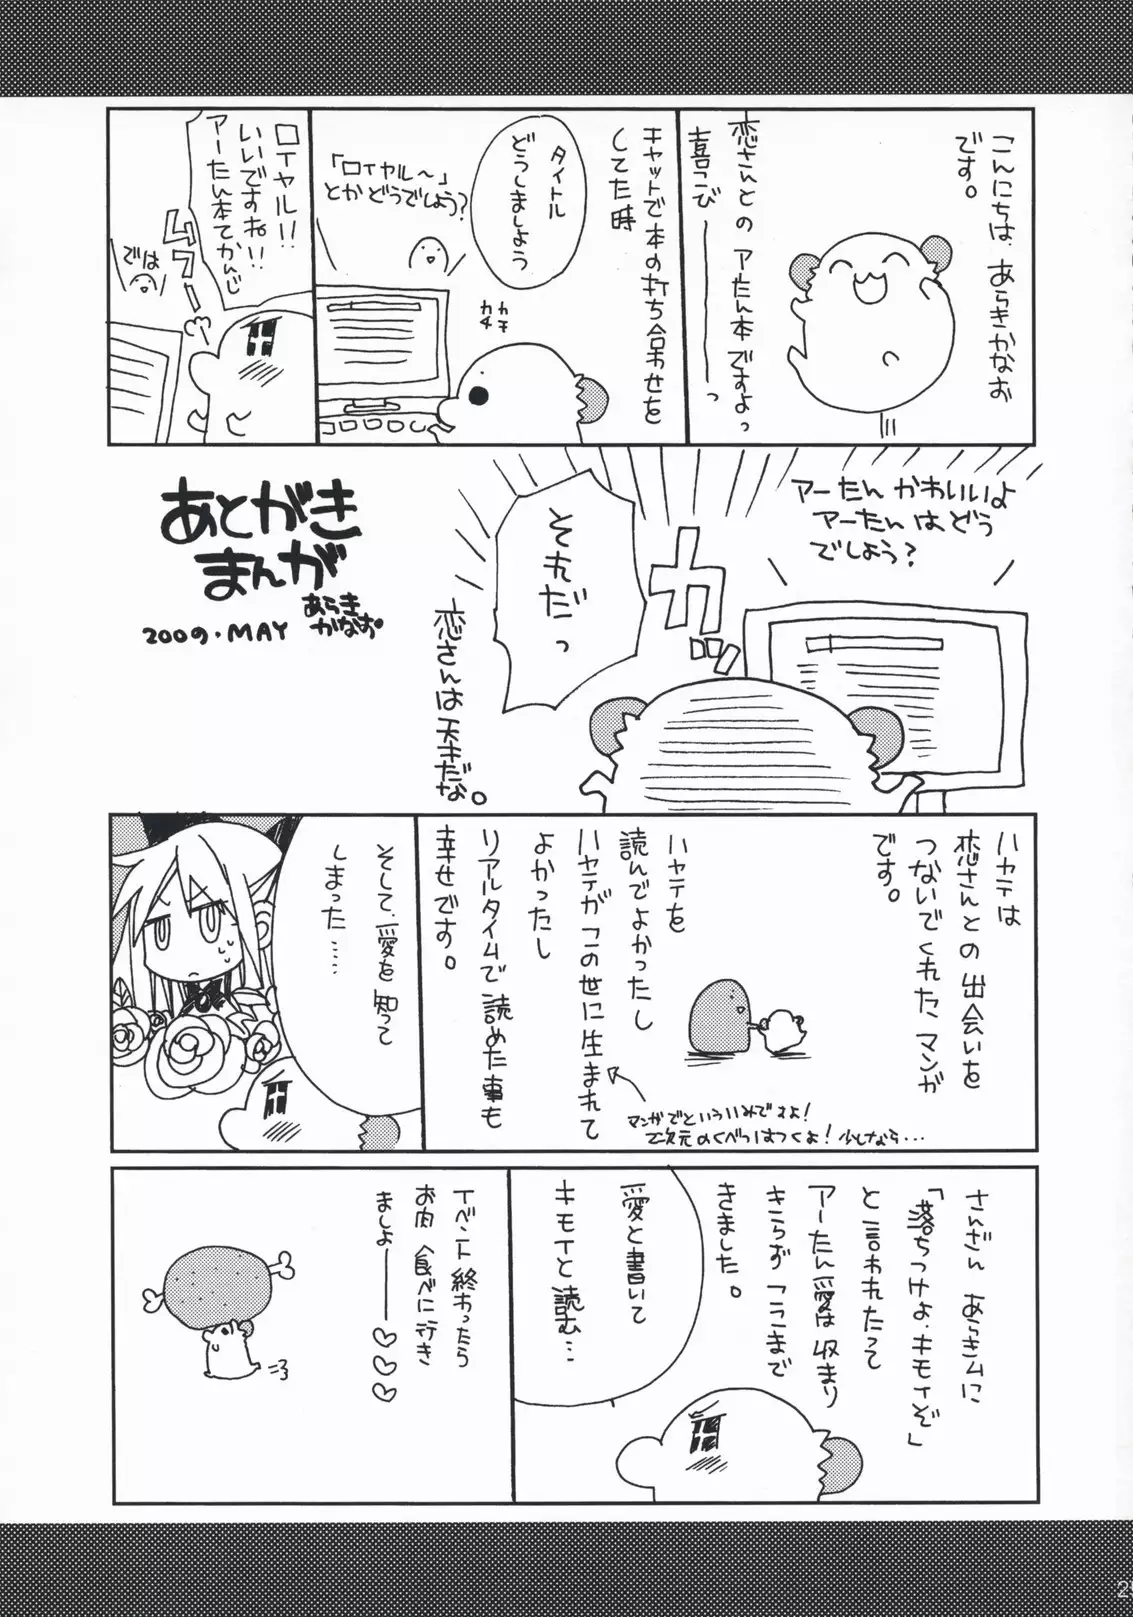 こんにちは、あらきかなお
です。
恋さんとのアーたん本ですよっ
喜こびーーーっ
キャットで本の打ち合わせを
してた時
タイトル
どうしましょう
「ロイヤル〜」
とかどうでしょう?
カチ
カチ
ロイヤル!!
いいですね!!
アーたん本てかんじ
ムフー
では
アーたんかわいいよ
アーたんはどう
でしょう?
カッ
それだっ
恋さんは天才だな。
あとがき
まんが
あらき
かなお。
2009.MAY
ハヤテは
恋さんとの出会いを
つないでくれたマンガ
です。
ハヤテを
読んでよかったし
ハヤテがこの世に生まれて
よかったし
リアルタイムで読めた事も
幸せです。
マンガでといういみですよ!
2次元のくべつはつくよ!少しなら...
そして、愛を知って
しまった……
さんざんあらきムに
「落ちつけよ、キモイぞ」
と言われたって
アーたん愛は収まり
きらずここまで
きました。
愛と書いて
キモイと読む…
イベント終わったら
お肉食べに行き
ましょーーー♡♡♡